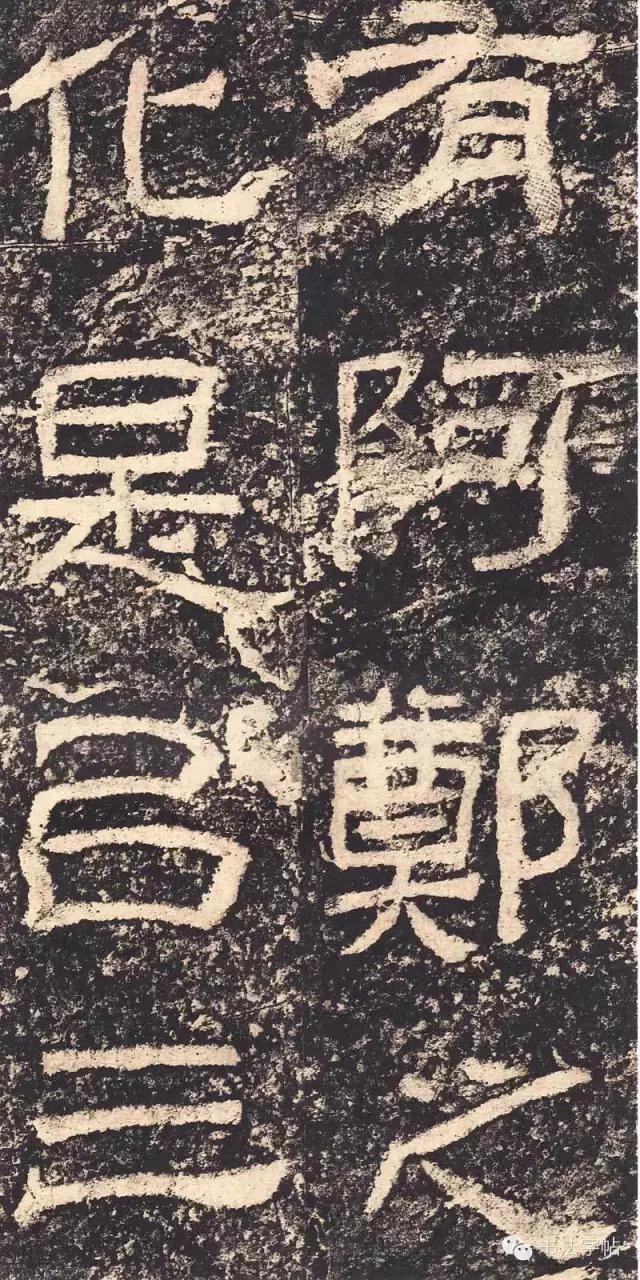 有阿鄭之
化是㠯三
书法字帖